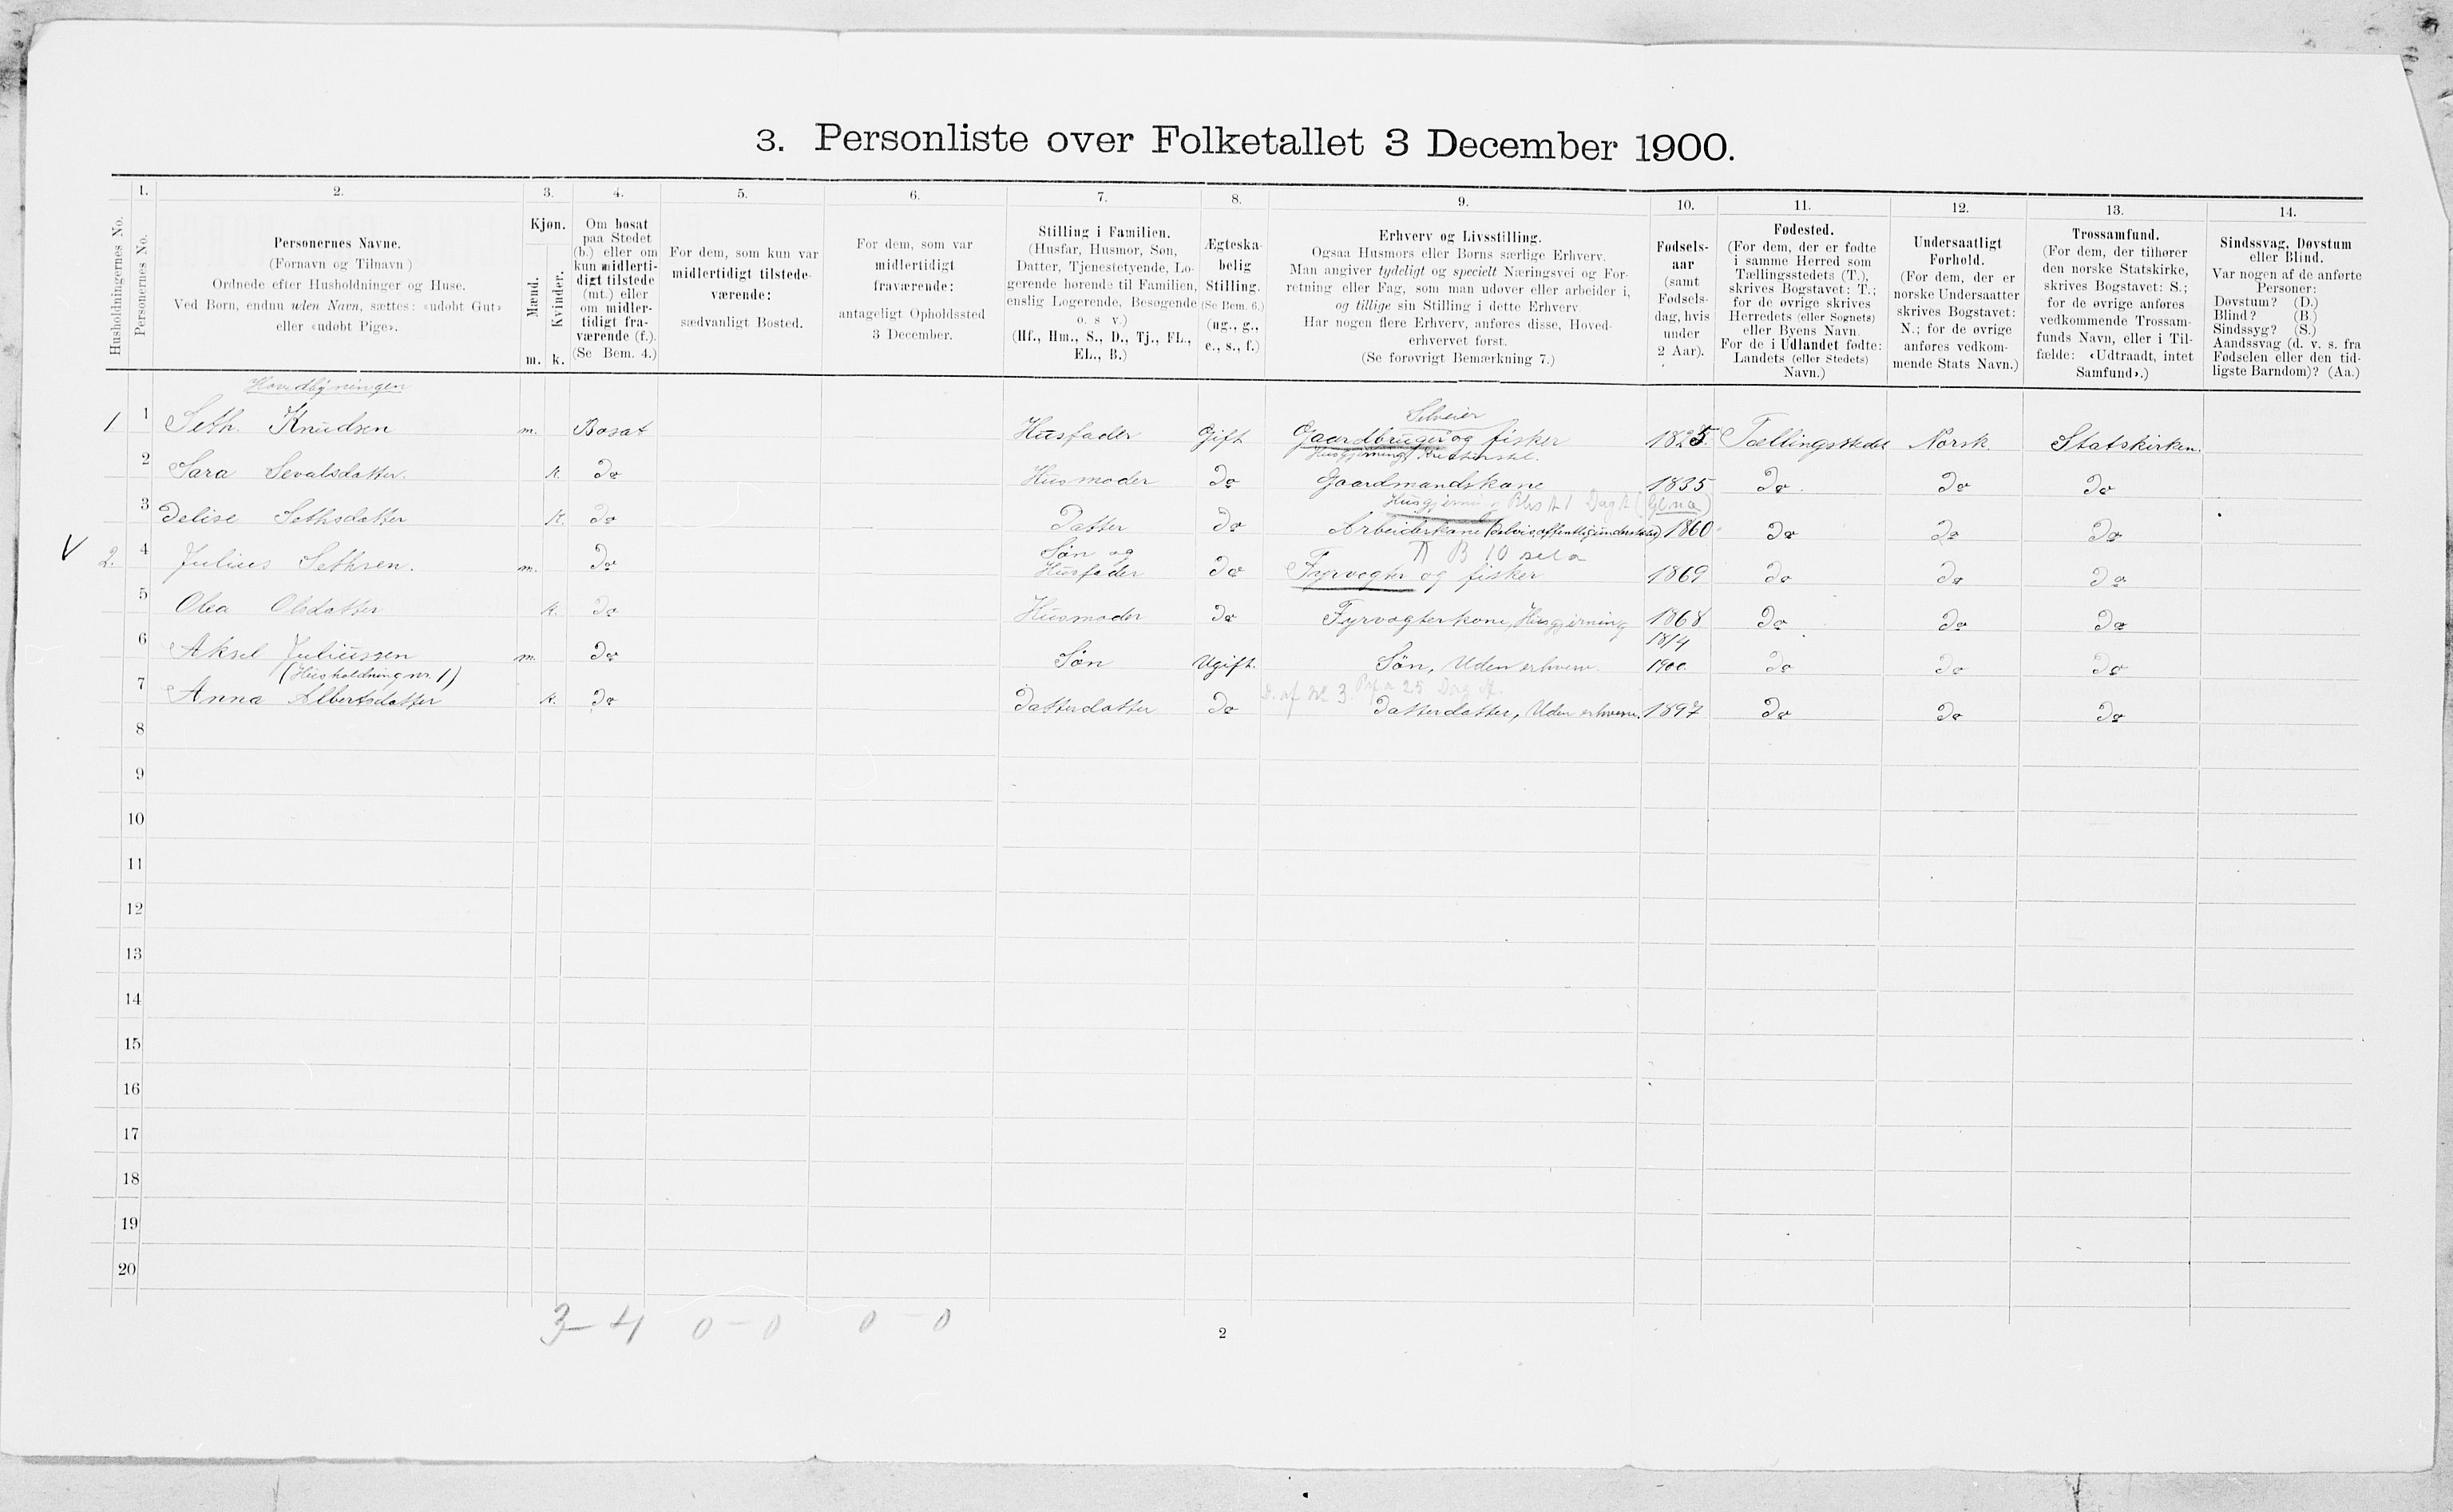 3. Personliste over Folketallet 3 December 1900.
Husholdningernes No.
1. Personernes No.
2. Personernes Navne.
(Fornavn og Tilnavn)
Ordnede efter Husholdninger og Huse.
Ved Børn, endnu uden Navn, sættes: «udøbt Gut»
eller «udøbt Pige».
3. Kjøn.
Mænd. Kvinder.
m. k.
4. Om bosat
paa Stedet
(b.) eller om
kun midlerti-
digt tilstede
(mt.) eller
om midler-
tidigt fra-
værende (f.).
(Se Bem. 4.)
5. For dem, som kun var
midlertidigt tilstede-
værende:
sædvanligt Bosted.
6. For dem, som var
midlertidigt
fraværende:
antageligt Opholdssted
3 December.
7. Stilling i Familien.
(Husfar, Husmor, Søn,
Datter, Tjenestetyende, Lo-
gerende hørende til Familien,
enslig Logerende, Besøgende
o. s. v.)
(Hf., Hm., S., D., Tj., FL.,
EL., B.)
8. Ægteska-
belig
Stilling.
(Se Bem. 6.)
(ug., g.,
e., s., f.)
9. Erhverv og Livsstilling.
Ogsaa Husmors eller Børns særlige Erhverv.
Man angiver tydeligt og specielt Næringsvei og For-
retning eller Fag, som man udøver eller arbeider i,
og tillige sin Stilling i dette Erhverv.
Har nogen flere Erhverv, anføres disse, Hoved-
erhvervet først.
(Se forøvrigt Bemærkning 7.)
10. Fødsels-
aar
(samt
Fødsels-
dag, hvis
under
2 Aar).
11. Fødested.
(For dem, der er fødte
i samme Herred som
Tællingsstedets (T.),
skrives Bogstavet: T.;
for de øvrige skrives
Herredets (eller Sognets)
eller Byens Navn.
For de i Udlandet fødte:
Landets (eller Stedets)
Navn.)
12. Undersaatligt
Forhold.
(For dem, der er
norske Undersaatter
skrives Bogstavet:
N.; for de øvrige
anføres vedkom-
mende Stats Navn.)
13. Trossamfund.
(For dem, der tilhører
den norske Statskirke,
skrives Bogstavet: S.;
for de øvrige anføres
vedkommende Trossam-
funds Navn, eller i Til-
fælde: «Udtraadt, intet
Samfund».)
14. Sindssvag, Døvstum
eller Blind.
Var nogen af de anførte
Personer:
Døvstum? (D.)
Blind? (B.)
Sindssyg? (S.)
Aandssvag (d. v. s. fra
Fødselen eller den tid-
ligste Barndom)? (Aa.)
Hovedbygningen
Selveier
1 1 Seth. Knudsen m. Bosat Husfader Gift Gaardbruger og fisker 1825. Tællingsstedet Norsk. Statskirken.
Husgjerning
2 Sara Sevaldsdatter. k. Do Husmoder Do Gaardmandskone 1835 Do. Do Do
Husgjerni
3 Delise Sethsdatter k. Do Datter Do Arbeiderkone (delvis offentlig understøtt) 1860 Do Do Do
Søn og
V 2. 4 Julius Sethsen. m. Do Husfader Do Fyrvogter og fisker 1869 Do Do Do
5 Olea Olsdatter k. Do Husmoder Do Fyrvogterkone, Husgjerning 1868 Do Do Do
6 Aksel Juliussen m. Do Søn Ugift. Søn, Uden erhverv. 18/4 1900 Do Do Do
(Husholdning nr. 1)
D. af No 3
7 Anna Albertsdatter k. Do Datterdatter Do Datterdatter, Uden erhverv. 1897 Do Do Do
8
9
10
11
12
13
14
15
16
17
18
19
20
3-4 0-0 0-0
2